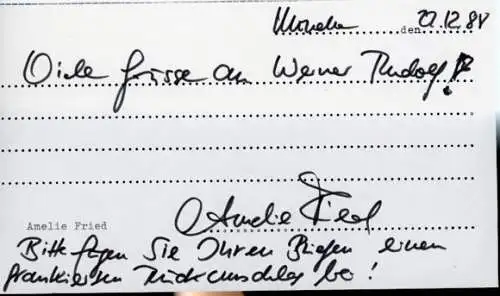 München den 22.12.84
Viele Grüsse an Werner Rudolf!
Amelie Fried
Amelie Fried
Bitte fügen Sie Ihren Briefen einen
frankierten Rückumschlag bei!